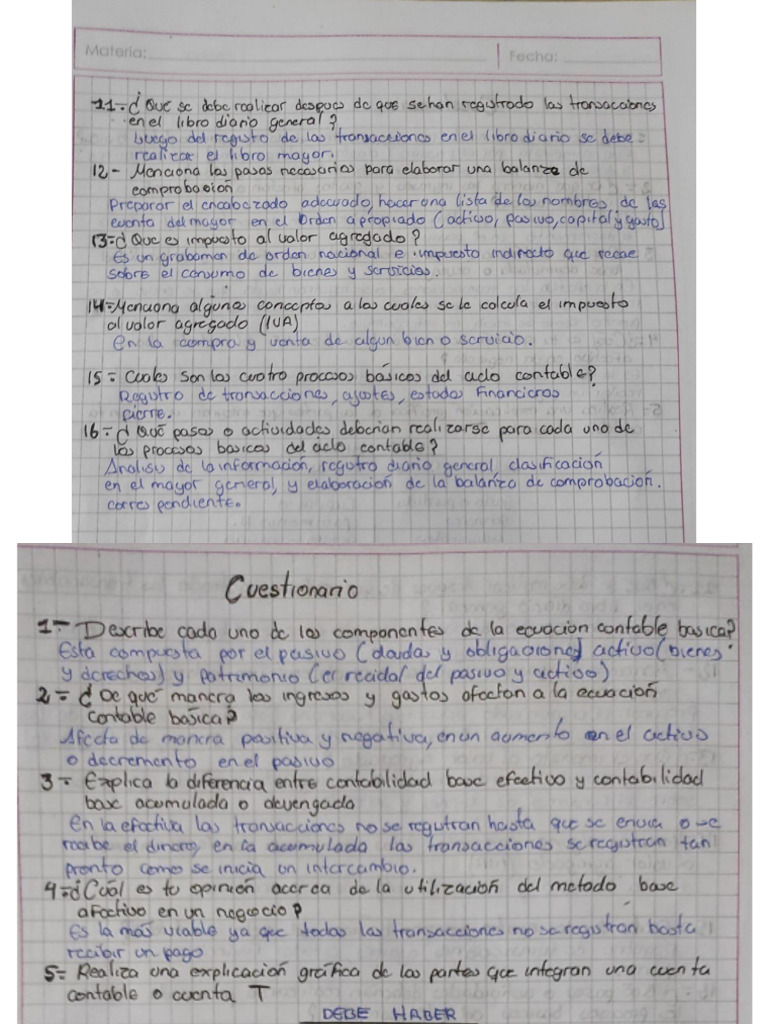 Materia:
Fecha:
11-¿Que se debe realizar despues de que se han registrado las transacciones
en el libro diario general?
Luego del registro de las transacciones en el libro diario se debe
realizar el libro mayor.
12- Menciona los pasos necesarios para elaborar una balanza de
comprobación
Preparar el encabezado adecuado, hacer una lista de los nombres de las
cuenta del mayor en el orden apropiado (activo, pasivo, capital y gasto)
13-¿Que es impuesto al valor agregado?
Es un grabamen de orden nacional e impuesto indirecto que recae
sobre el consumo de bienes y servicios.
14-Menciona algunos conceptos a los cuales se le calcula el impuesto
al valor agregado (IVA)
en la compra y venta de algun bien o servicio.
15- Cuales son los cuatro procesos básicos del ciclo contable?
Registro de transacciones, ajustes, estados financieros
cierre.
16-¿Qué pasos o actividades deberian realizarse para cada uno de
los procesos basicos del ciclo contable?
Analisis de la información, registro diario general, clasificación
en el mayor general, y elaboración de la balanza de comprobación.
correspondiente.
Cuestionario
1- Describe cada uno de los componentes de la ecuación contable basica?
Esta compuesta por el pasivo (deuda y obligaciones) activo (bienes
y derechos) y patrimonio (er recidal del pasivo y activo)
2-¿De qué manera los ingresos y gastos afectan a la ecuación
contable básica?
Afecta de manera positiva y negativa, en un aumento en el activo
o decremento en el pasivo
3- Explica la diferencia entre contabilidad base efectivo y contabilidad
base acumulada o devengado
En la efectiva las transacciones no se registran hasta que se envia o se
recibe el dinero, en la acumulada las transacciones se registran tan
pronto como se inicia un intercambio.
4-¿Cuál es tu opinión acerca de la utilización del metodo base
efectivo en un negocio?
Es la más viable ya que todas las transacciones no se registran hasta
recibir un pago
5- Realiza una explicación gráfica de las partes que integran una cuenta
contable o cuenta T
DEBE HABER